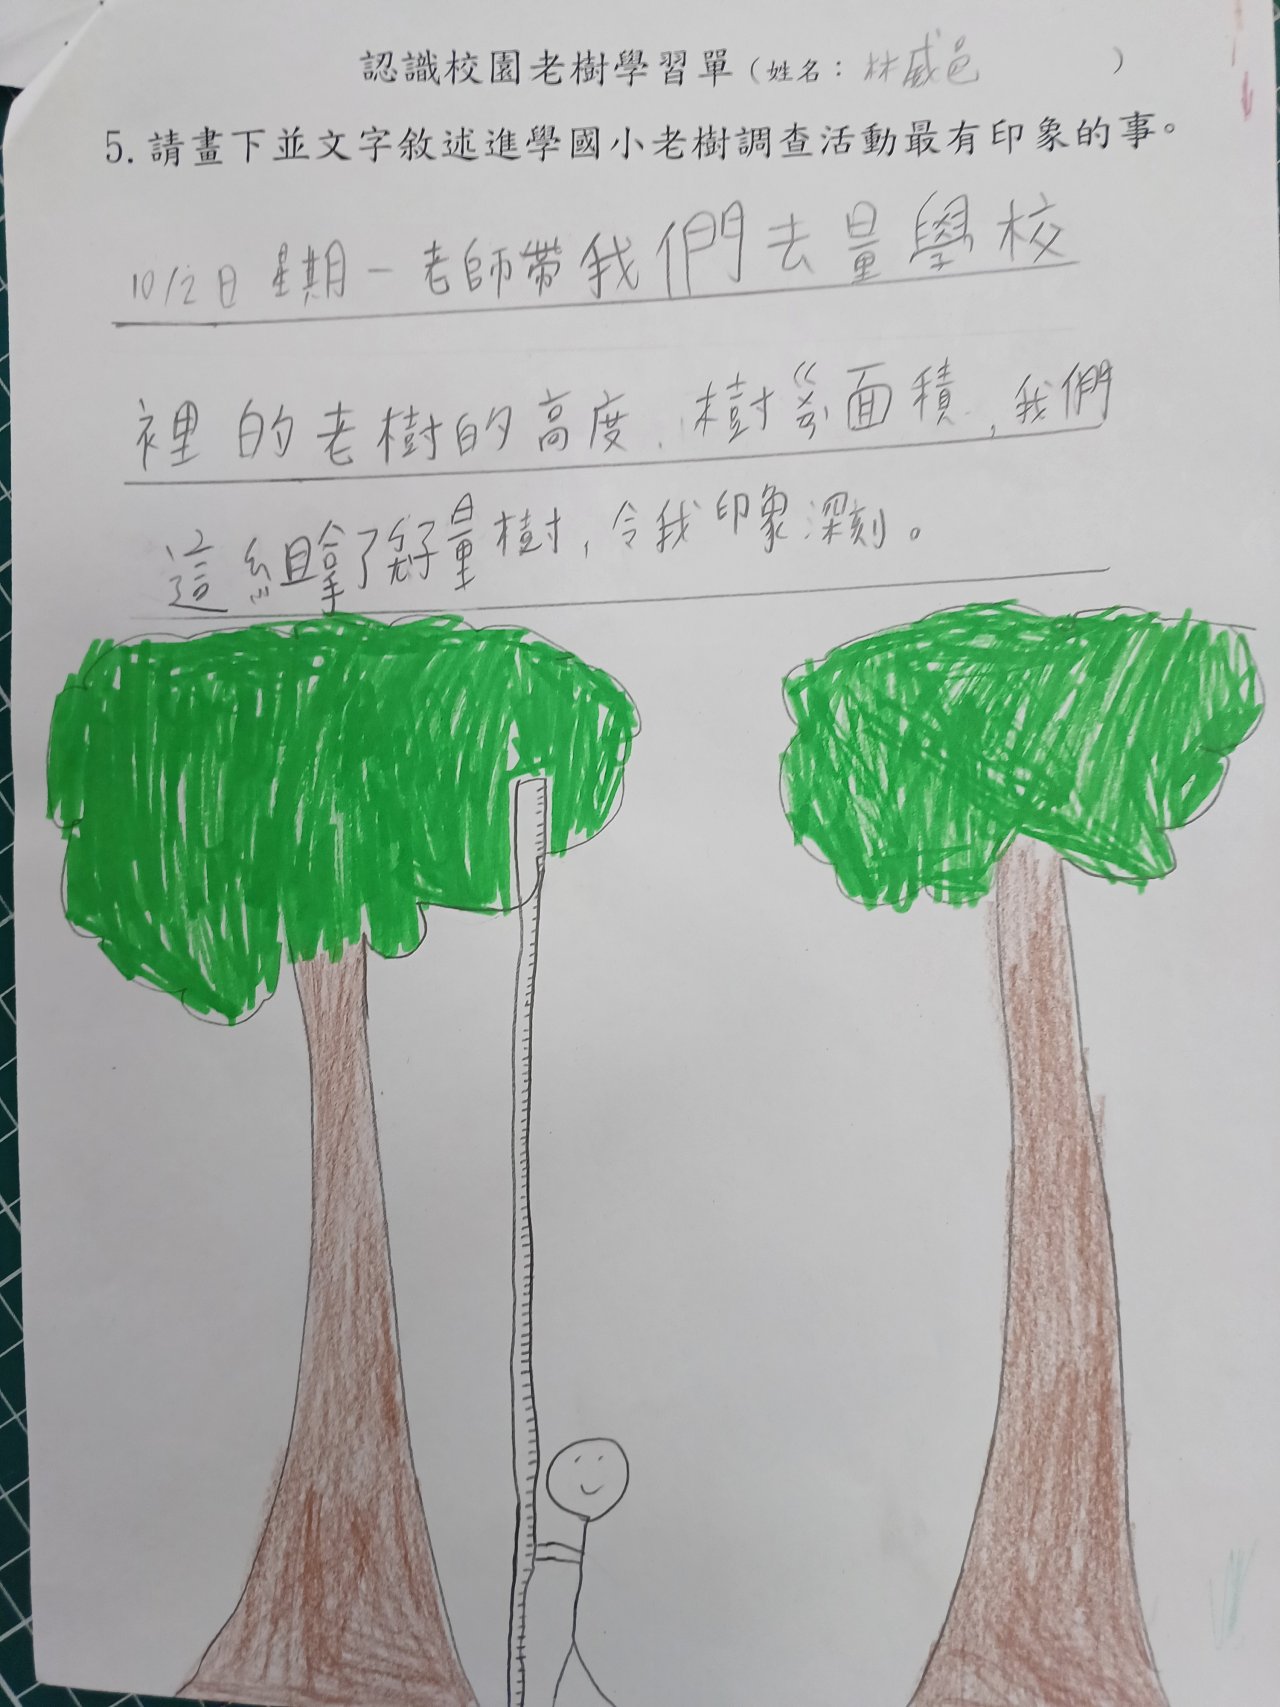 認識校園老樹學習單(姓名：林威邑)
5.請畫下並文字敘述進學國小老樹調查活動最有印象的事。
10/2日星期一老師帶我們去量學校
裡的老樹的高度、樹ㄍㄢ面積，我們
這組拿了尺量樹，令我印象深刻。